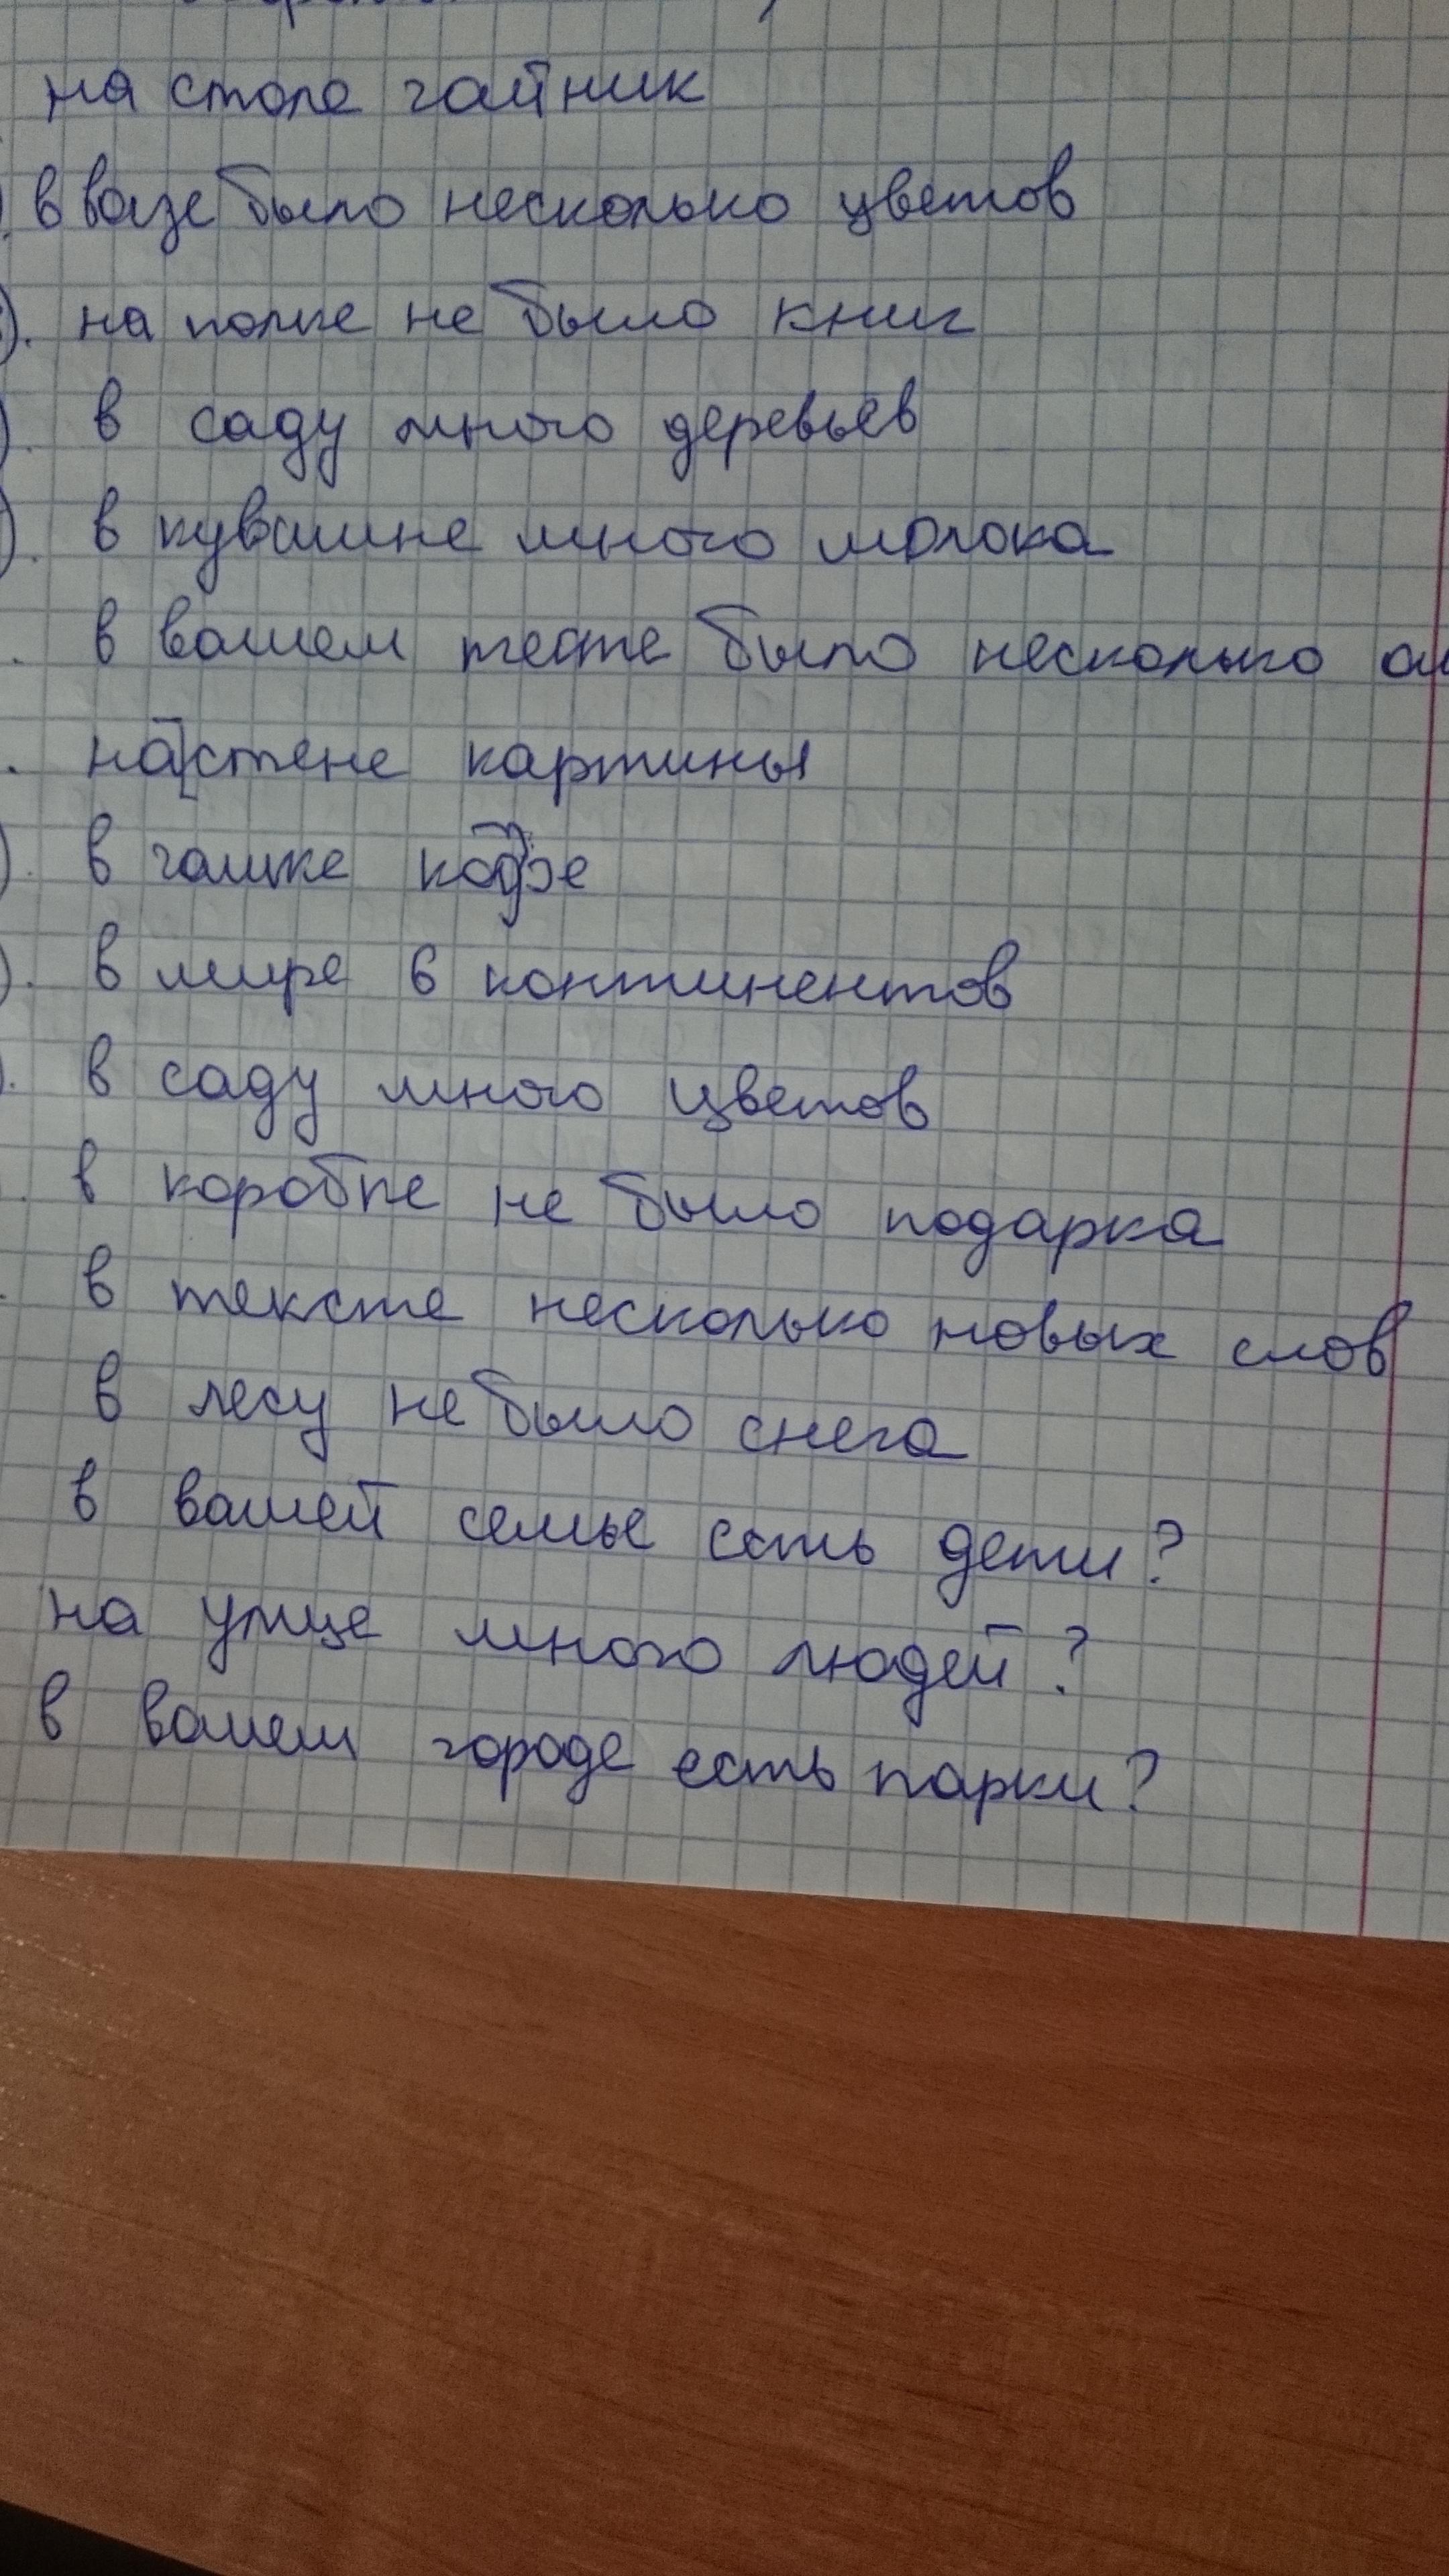 на столе чайник
в вазе было несколько цветов
). на полке не было книг
). в саду много деревьев
). в кувшине много молока
. в вашем тесте было несколько
. на стене картины
). в чашке кофе
). в мире 6 континентов
). в саду много цветов
. в коробке не было подарка
. в тексте несколько новых слов
в лесу не было снега
в вашей семье есть дети?
на улице много людей?
в вашем городе есть парки?